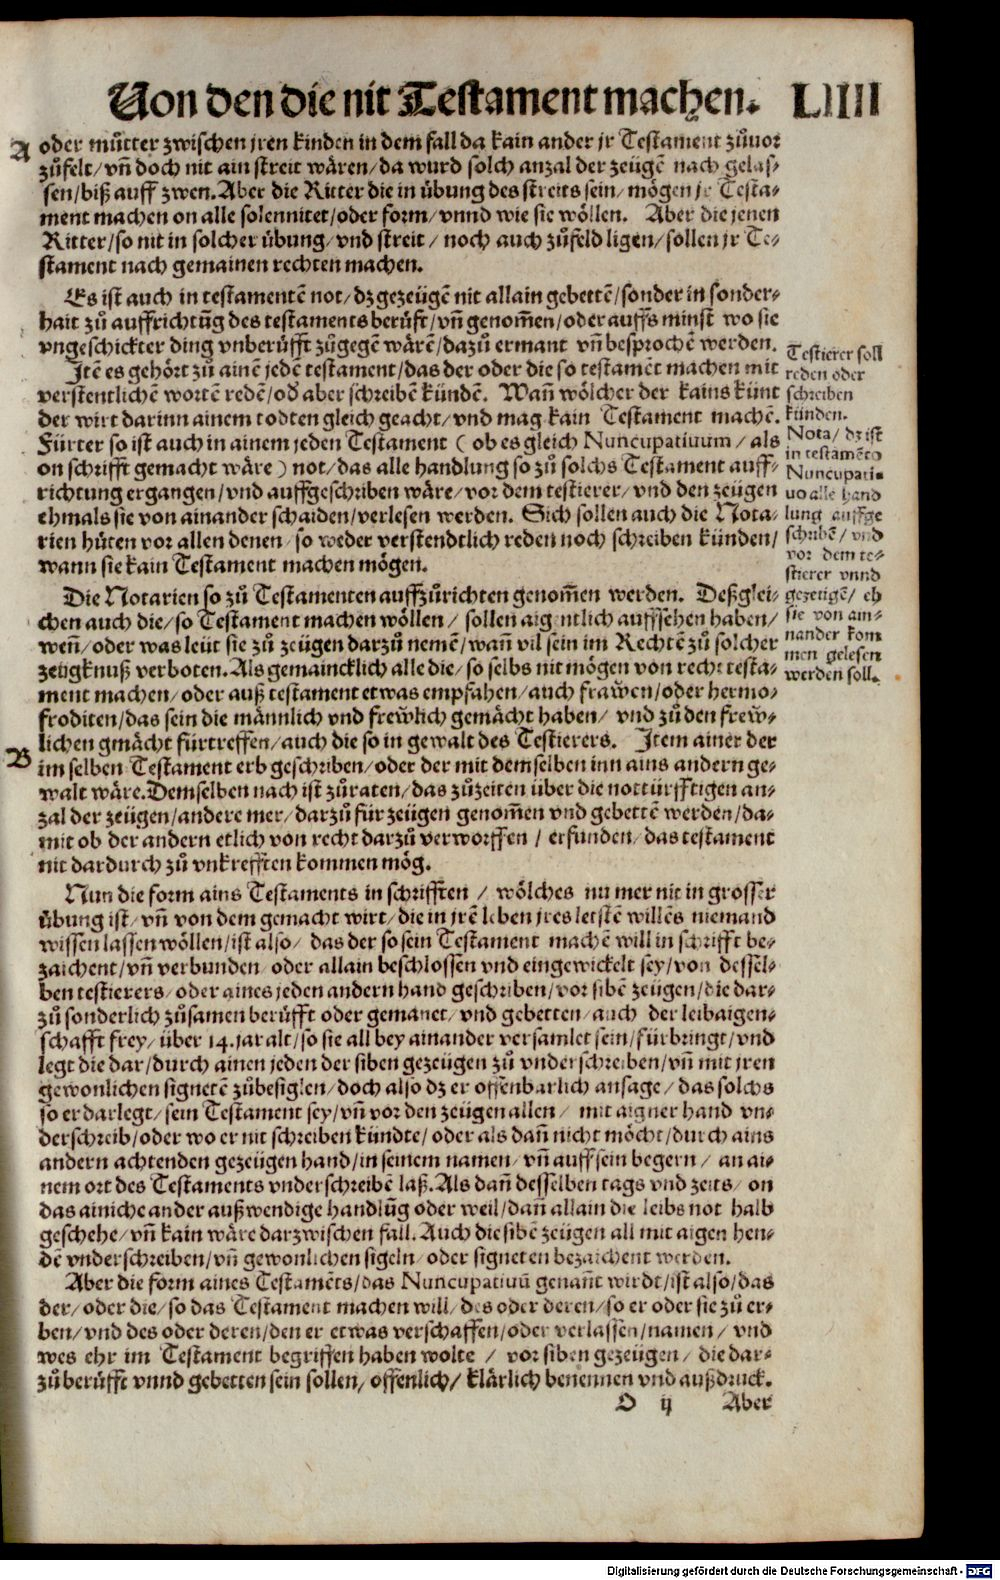 Von den die nit Testament machen. LIIII
A
oder můtter zwischen jren kinden in dem fall da kain ander jr Testament zůuor
zůfelt/ vñ doch nit ain streit wären/ da wurd solch anzal der zeügẽ nach gelas-
sen/ biß auff zwen. Aber die Ritter die in übung des streits sein/ mögen jr Testa-
ment machen on alle solennitet/ oder form/ vnnd wie sie wöllen. Aber die jenen
Ritter/ so nit in solcher übung/ vnd streit/ noch auch zůfeld ligen/ sollen jr Te-
stament nach gemainen rechten machen.
Es ist auch in testamentẽ not/ dz gezeügẽ nit allain gebettẽ/ sonder in sonder-
hait zů auffrichtũg des testaments berüft/ vñ genom̃en/ oder auffs minst wo sie
vngeschickter ding vnberüfft zůgegẽ wärẽ/ dazů ermant vñ besprochẽ werden.
Jtẽ es gehört zů ainẽ jedẽ testament/ das der oder die so testamẽt machen mit
verstentlichẽ wortẽ redẽ/ od̃ aber schreibẽ kündẽ. Wañ wölcher der kains künt
der wirt darinn ainem todten gleich geacht/ vnd mag kain Testament machẽ.
Fürter so ist auch in ainem jeden Testament ( ob es gleich Nuncupatiuum/ als
on schrifft gemacht wäre ) not/ das alle handlung so zů solchs Testament auff-
richtung ergangen/ vnd auffgeschriben wäre/ vor dem testierer/ vnd den zeügen
ehmals sie von ainander schaiden/ verlesen werden. Sich sollen auch die Nota-
rien hüten vor allen denen/ so weder verstendtlich reden noch schreiben künden/
wann sie kain Testament machen mögen.
Testierer soll
reden oder
schreiben
künden.
Nota/ dz ist
in testamẽto
Nuncupati-
uo alle hand
lung auffge
schribẽ/ vnd
vor dem te-
stierer vnnd
gezeügẽ/ eh
sie von ain-
nander kom
men gelesen
werden soll.
Die Notarien so zů Testamenten auffzůrichten genom̃en werden. Deßglei-
chen auch die/ so Testament machen wöllen/ sollen aigentlich auffsehen haben/
weñ/ oder was leüt sie zů zeügen darzů nemẽ/ wañ vil sein im Rechtẽ zů solcher
zeügknuß verboten. Als gemaincklich alle die/ so selbs nit mögen von recht testa-
ment machen/ oder auß testament etwas empfahen/ auch frawen/ oder hermo-
froditen/ das sein die männlich vnd frewlich gemächt haben/ vnd zů den frew-
lichen gmächt fürtreffen/ auch die so in gewalt des Testierers. Jtem ainer der
B
im selben Testament erb geschriben/ oder der mit demselben inn ains andern ge-
walt wäre. Demselben nach ist zůraten/ das zůzeiten über die nottürfftigen an-
zal der zeügen/ andere mer/ darzů für zeügen genom̃en vnd gebettẽ werden/ da-
mit ob der andern etlich von recht darzů verworffen/ erfunden/ das testament
nit dardurch zů vnkrefften kommen mög.
Nun die form ains Testaments in schrifften/ wölches nu mer nit in grosser
übung ist/ vñ von dem gemacht wirt/ die in jrẽ leben jres letstẽ willẽs niemand
wissen lassen wöllen/ ist also/ das der so sein Testament machẽ will in schrifft be-
zaichent/ vñ verbunden/ oder allain beschlossen vnd eingewickelt sey/ von dessel-
ben testierers/ oder aines jeden andern hand geschriben/ vor sibẽ zeügen/ die dar-
zů sonderlich zůsamen berüfft oder gemanet/ vnd gebetten/ auch der leibaigen-
schafft frey/ über 14. jar alt/ so sie all bey ainander versamlet sein/ fürbringt/ vnd
legt die dar/ durch ainen jeden der siben gezeügen zů vnderschreiben/ vñ mit jren
gewonlichen signetẽ zůbesiglen/ doch also dz er offenbarlich ansage/ das solchs
so er darlegt/ sein Testament sey/ vñ vor den zeügen allen/ mit aigner hand vn-
derschreib/ oder wo er nit schreiben kündte/ oder als dañ nicht möcht/ durch ains
andern achtenden gezeügen hand/ in seinem namen/ vñ auff sein begern/ an ai-
nem ort des Testaments vnderschreibẽ laß. Als dañ desselben tags vnd zeits/ on
das ainiche ander außwendige handlũg oder weil/ dañ allain die leibs not halb
geschehe/ vñ kain wäre darzwischen fall. Auch die sibẽ zeügen all mit aigen hen-
dẽ vnderschreiben/ vñ gewonlichen sigeln/ oder signeten bezaichent werden.
Aber die form aines Testamẽts/ das Nuncupatiuũ genañt wirdt/ ist also/ das
der/ oder die/ so das Testament machen will/ des oder deren/ so er oder sie zů er-
ben/ vnd des oder deren/ den er etwas verschaffen/ oder verlassen/ namen/ vnd
wes ehr im Testament begriffen haben wolte/ vor siben gezeügen/ die dar-
zů berüfft vnnd gebetten sein sollen/ offenlich/ klärlich benennen vnd außdruck.
O ij Aber
Digitalisierung gefördert durch die Deutsche Forschungsgemeinschaft - DFG